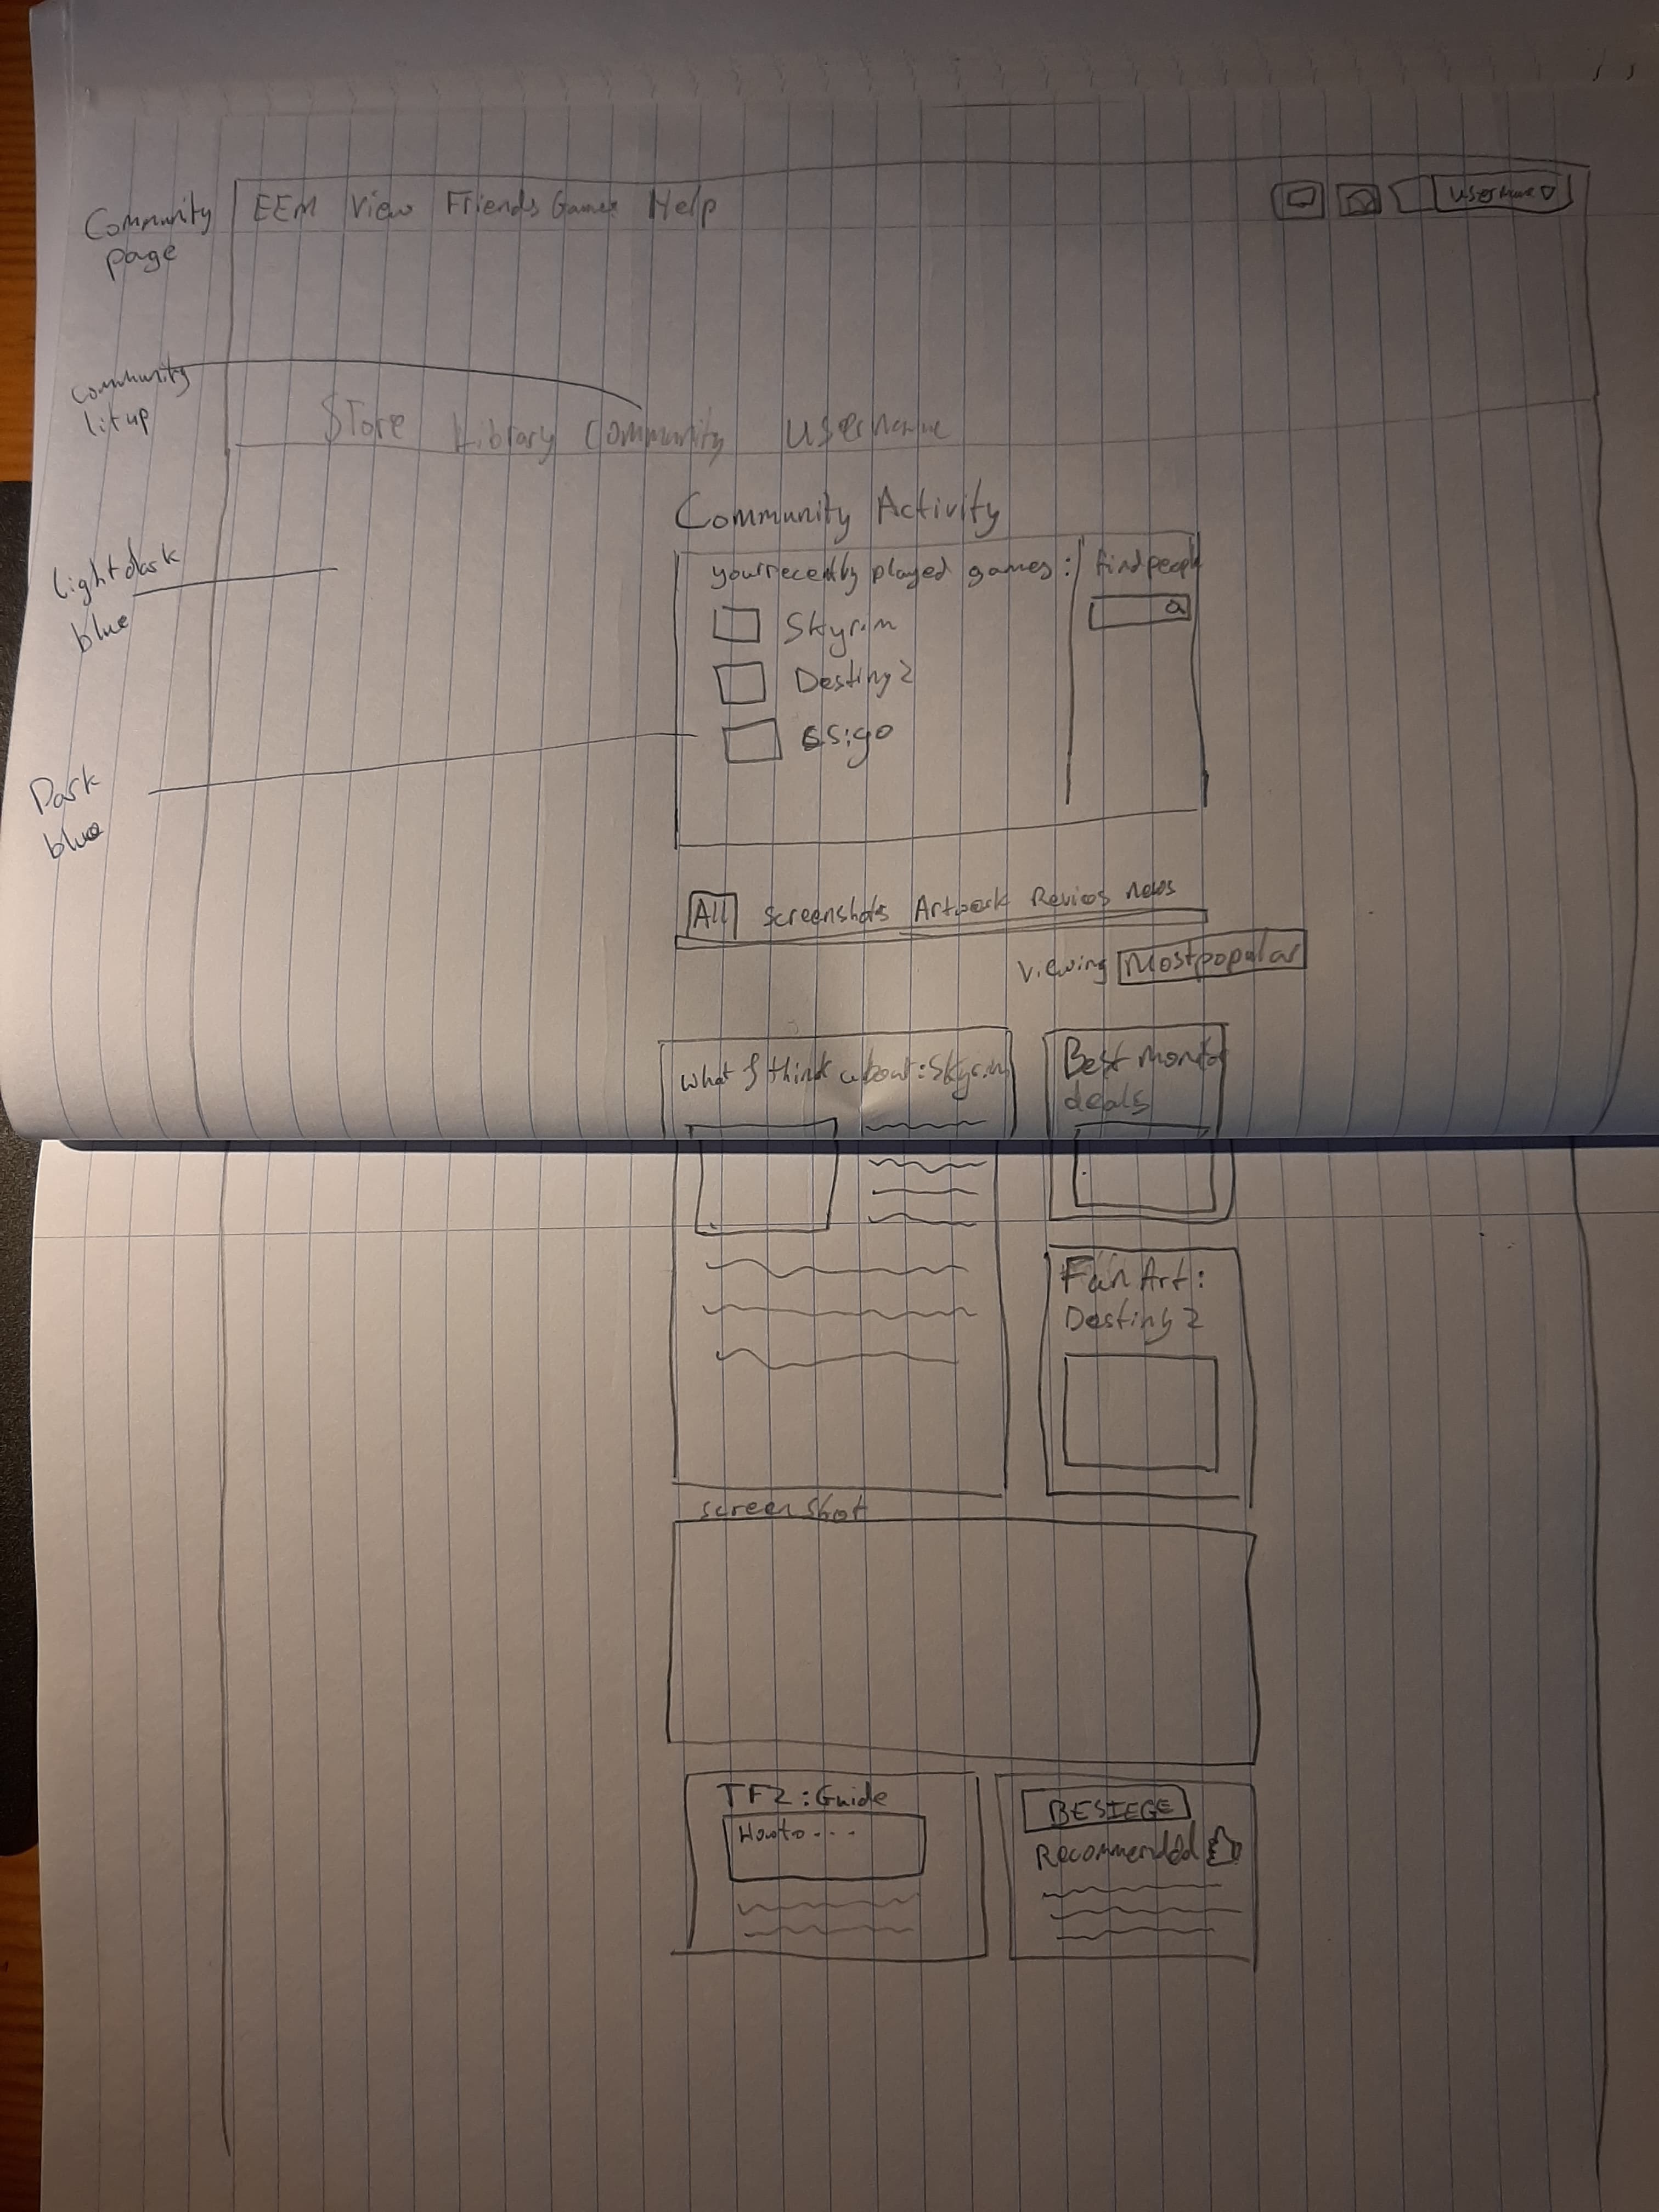 Community
page
EEM View Friends Games Help
username
Community
lit up
Store Library Community username
Community Activity
Light dark
blue
your recently played games:
find people
Skyrim
Destiny 2
CS:go
Dark
blue
All screenshots Artwork Revies news
Viewing Most popular
what I think about: Skyrim
Best monitor
deals
Fan Art:
Destiny 2
screenshot
TF2: Guide
How to...
BESIEGE
Recommended